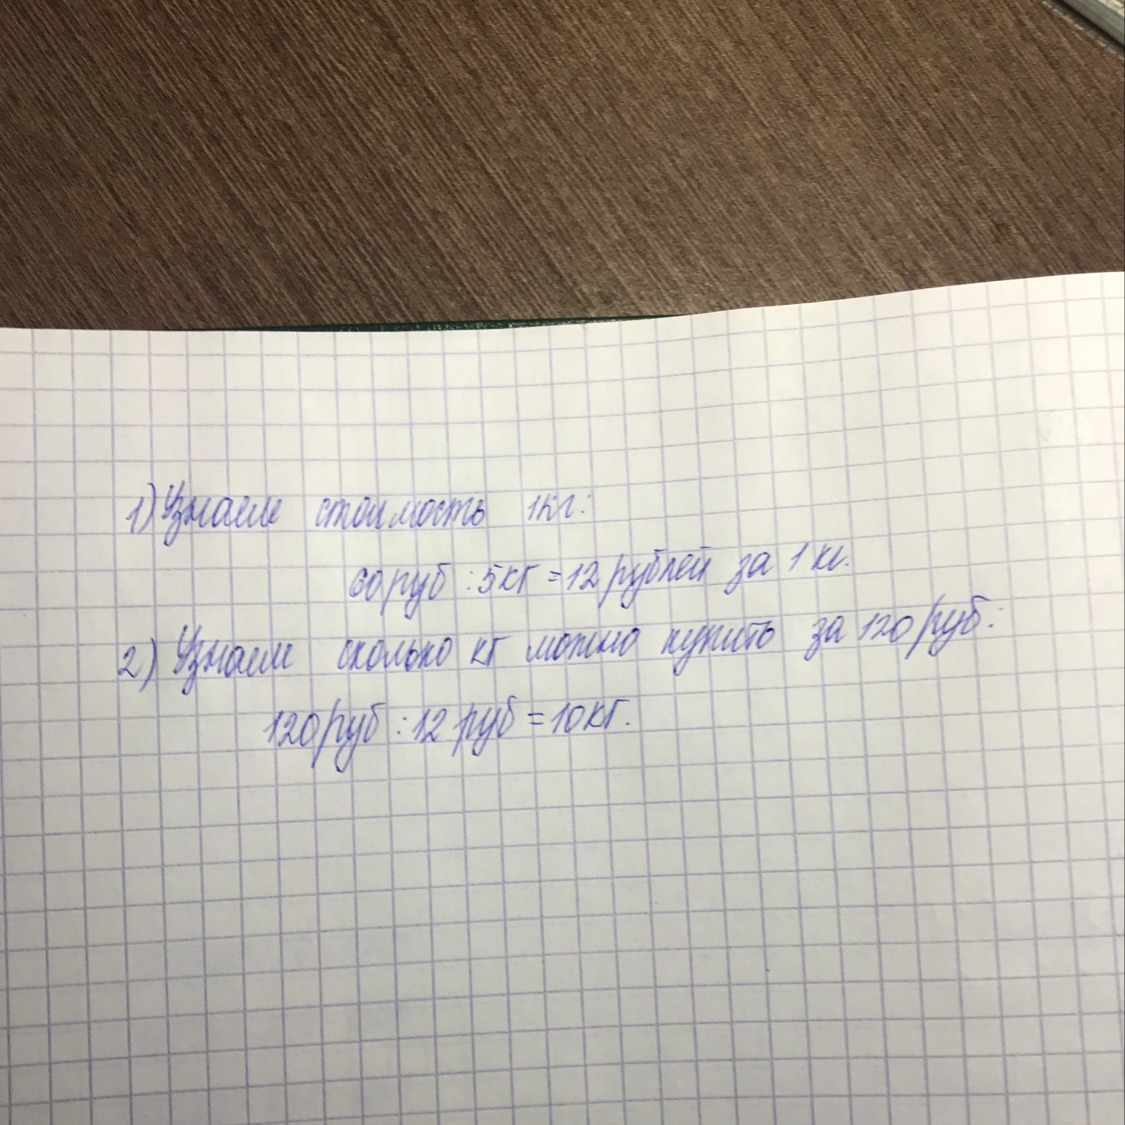 1) Узнаем стоимость 1кг:
60 руб : 5кг = 12 рублей за 1 кг.
2) Узнаем сколько кг можно купить за 120 руб:
120 руб : 12 руб = 10 кг.